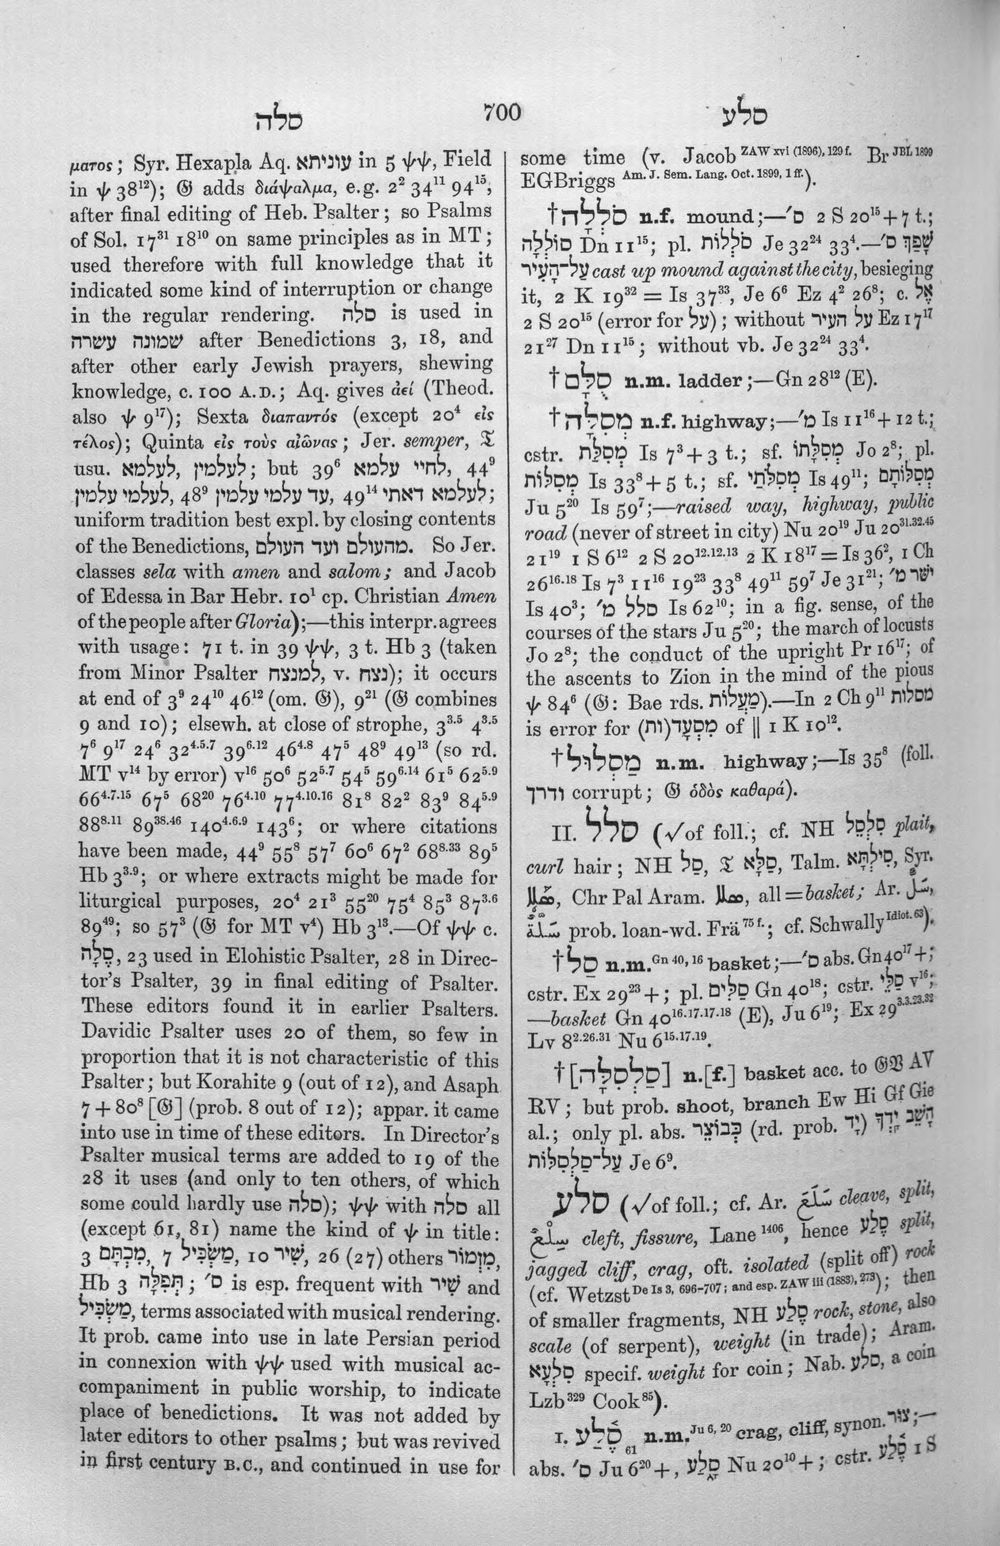 סלה
700
סלע
ματος; Syr. Hexapla Aq. עוניתא in 5 ψψ, Field
in ψ 38¹²); 𝔊 adds διάψαλμα, e.g. 2² 34¹¹ 94¹⁵,
after final editing of Heb. Psalter; so Psalms
of Sol. 17³¹ 18¹⁰ on same principles as in MT;
used therefore with full knowledge that it
indicated some kind of interruption or change
in the regular rendering. סלה is used in
שמונה עשרה after Benedictions 3, 18, and
after other early Jewish prayers, shewing
knowledge, c. 100 A.D.; Aq. gives ἀεί (Theod.
also ψ 9¹⁷); Sexta διαπαντός (except 20⁴ εἰς
τέλος); Quinta εἰς τοὺς αἰῶνας; Jer. semper, 𝔗
usu. לעלמין, לעלמא; but 39⁶ לחיי עלמא, 44⁹
לעלמי עלמין, 48⁹ עד עלמי עלמין, 49¹⁴ לעלמא דאתי;
uniform tradition best expl. by closing contents
of the Benedictions, מהעולם ועד העולם. So Jer.
classes sela with amen and salom; and Jacob
of Edessa in Bar Hebr. 10¹ cp. Christian Amen
of the people after Gloria);—this interpr. agrees
with usage: 71 t. in 39 ψψ, 3 t. Hb 3 (taken
from Minor Psalter למנצח, v. נצח); it occurs
at end of 3⁹ 24¹⁰ 46¹² (om. 𝔊), 9²¹ (𝔊 combines
9 and 10); elsewh. at close of strophe, 3³·⁵ 4³·⁵
7⁶ 9¹⁷ 24⁶ 32⁴·⁵·⁷ 39⁶·¹² 46⁴·⁸ 47⁵ 48⁹ 49¹³ (so rd.
MT v¹⁴ by error) v¹⁶ 50⁶ 52⁵·⁷ 54⁵ 59⁶·¹⁴ 61⁵ 62⁵·⁹
66⁴·⁷·¹⁵ 67⁵ 68²⁰ 76⁴·¹⁰ 77⁴·¹⁰·¹⁶ 81⁸ 82² 83⁹ 84⁵·⁹
88⁸·¹¹ 89³⁸·⁴⁶ 140⁴·⁶·⁹ 143⁶; or where citations
have been made, 44⁹ 55⁸ 57⁷ 60⁶ 67² 68⁸·³³ 89⁵
Hb 3³·⁹; or where extracts might be made for
liturgical purposes, 20⁴ 21³ 55²⁰ 75⁴ 85³ 87³·⁶
89⁴⁹; so 57³ (𝔊 for MT v⁴) Hb 3¹³.—Of ψψ c.
סֶלָה, 23 used in Elohistic Psalter, 28 in Direc-
tor's Psalter, 39 in final editing of Psalter.
These editors found it in earlier Psalters.
Davidic Psalter uses 20 of them, so few in
proportion that it is not characteristic of this
Psalter; but Korahite 9 (out of 12), and Asaph
7 + 80⁸ [𝔊] (prob. 8 out of 12); appar. it came
into use in time of these editors. In Director's
Psalter musical terms are added to 19 of the
28 it uses (and only to ten others, of which
some could hardly use סלה); ψψ with סלה all
(except 61, 81) name the kind of ψ in title:
3 מִכְתָּם, 7 מַשְׂכִּיל, 10 שִׁיר, 26 (27) others מִזְמוֹר,
Hb 3 תְּפִלָּה; ס׳ is esp. frequent with שִׁיר and
מַשְׂכִּיל, terms associated with musical rendering.
It prob. came into use in late Persian period
in connexion with ψψ used with musical ac-
companiment in public worship, to indicate
place of benedictions. It was not added by
later editors to other psalms; but was revived
in first century B.C., and continued in use for
some time (v. Jacob ZAW xvi (1896), 129 f. Br JBL 1899
EGBriggs Am. J. Sem. Lang. Oct. 1899, 1 ff.).
†סֹלְלָה n.f. mound;—ס׳ 2 S 20¹⁵ + 7 t.;
סוֹלְלָה Dn 11¹⁵; pl. סֹלְלוֹת Je 32²⁴ 33⁴.—שָׁפַךְ ס׳
עַל־הָעִיר cast up mound against the city, besieging
it, 2 K 19³² = Is 37³³, Je 6⁶ Ez 4² 26⁸; c. אֶל
2 S 20¹⁵ (error for על); without על העיר Ez 17¹⁷
21²⁷ Dn 11¹⁵; without vb. Je 32²⁴ 33⁴.
†סֻלָּם n.m. ladder;—Gn 28¹² (E).
†מְסִלָּה n.f. highway;—מ׳ Is 11¹⁶ + 12 t.;
cstr. מְסִלַּת Is 7³ + 3 t.; sf. מְסִלָּתוֹ Jo 2⁸; pl.
מְסִלּוֹת Is 33⁸ + 5 t.; sf. מְסִלֹּתַי Is 49¹¹; מְסִלּוֹתָם
Ju 5²⁰ Is 59⁷;—raised way, highway, public
road (never of street in city) Nu 20¹⁹ Ju 20³¹·³²·⁴⁵
21¹⁹ 1 S 6¹² 2 S 20¹²·¹²·¹³ 2 K 18¹⁷ = Is 36², 1 Ch
26¹⁶·¹⁸ Is 7³ 11¹⁶ 19²³ 33⁸ 49¹¹ 59⁷ Je 31²¹; ישׁר מ׳
Is 40³; סלל מ׳ Is 62¹⁰; in a fig. sense, of the
courses of the stars Ju 5²⁰; the march of locusts
Jo 2⁸; the conduct of the upright Pr 16¹⁷; of
the ascents to Zion in the mind of the pious
ψ 84⁶ (𝔊: Bae rds. מַעֲלוֹת).—In 2 Ch 9¹¹ מסלות
is error for (מִסְעָד(וֹת of ‖ 1 K 10¹².
†מַסְלוּל n.m. highway;—Is 35⁸ (foll.
ודרך corrupt; 𝔊 ὁδὸς καθαρά).
II. סלל (√ of foll.; cf. NH סִלְסֵל plait,
curl hair; NH סַל, 𝔗 סַלָּא, Talm. סִילְתָּא, Syr.
ܣܠܐ, Chr Pal Aram. ܣܠܐ, all = basket; Ar. سَلّ,
سَلَّة prob. loan-wd. Frä⁷⁵ ᶠ·; cf. Schwally Idiot. 63).
†סַל n.m. Gn 40, 16 basket;—ס׳ abs. Gn 40¹⁷ +;
cstr. Ex 29²³ +; pl. סַלִּים Gn 40¹⁸; cstr. סַלֵּי v¹⁶;
—basket Gn 40¹⁶·¹⁷·¹⁷·¹⁸ (E), Ju 6¹⁹; Ex 29³·³·²³·³²
Lv 8²·²⁶·³¹ Nu 6¹⁵·¹⁷·¹⁹.
†[סַלְסִלָּה] n.[f.] basket acc. to 𝔊𝔙 AV
RV; but prob. shoot, branch Ew Hi Gf Gie
al.; only pl. abs. כְּבוֹצֵר (rd. prob. יָד) הָשֵׁב יָדְךָ
עַל־סַלְסִלּוֹת Je 6⁹.
סלע (√ of foll.; cf. Ar. سَلَعَ cleave, split,
سَلْع cleft, fissure, Lane ¹⁴⁰⁶, hence סֶלַע split,
jagged cliff, crag, oft. isolated (split off) rock
(cf. Wetzst De Is 3, 696–707; and esp. ZAW iii (1883), 273); then
of smaller fragments, NH סֶלַע rock, stone, also
scale (of serpent), weight (in trade); Aram.
סִלְעָא specif. weight for coin; Nab. סלע, a coin
Lzb³²⁹ Cook⁸⁵).
I. סֶלַע n.m. Ju 6, 20 crag, cliff, synon. צוּר;—
61
abs. ס׳ Ju 6²⁰ +, סָלַע Nu 20¹⁰ +; cstr. סֶלַע 1 S